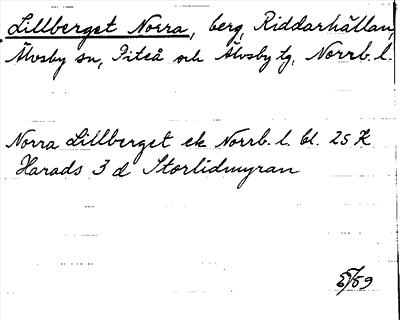 Lillberget Norra, berg, Riddarhällan,
Älvsby sn, Piteå och Älvsby tg, Norrb. l.
Norra Lillberget ek Norrb. l. bl. 25 K
Harads 3 d Storlidmyran
/59